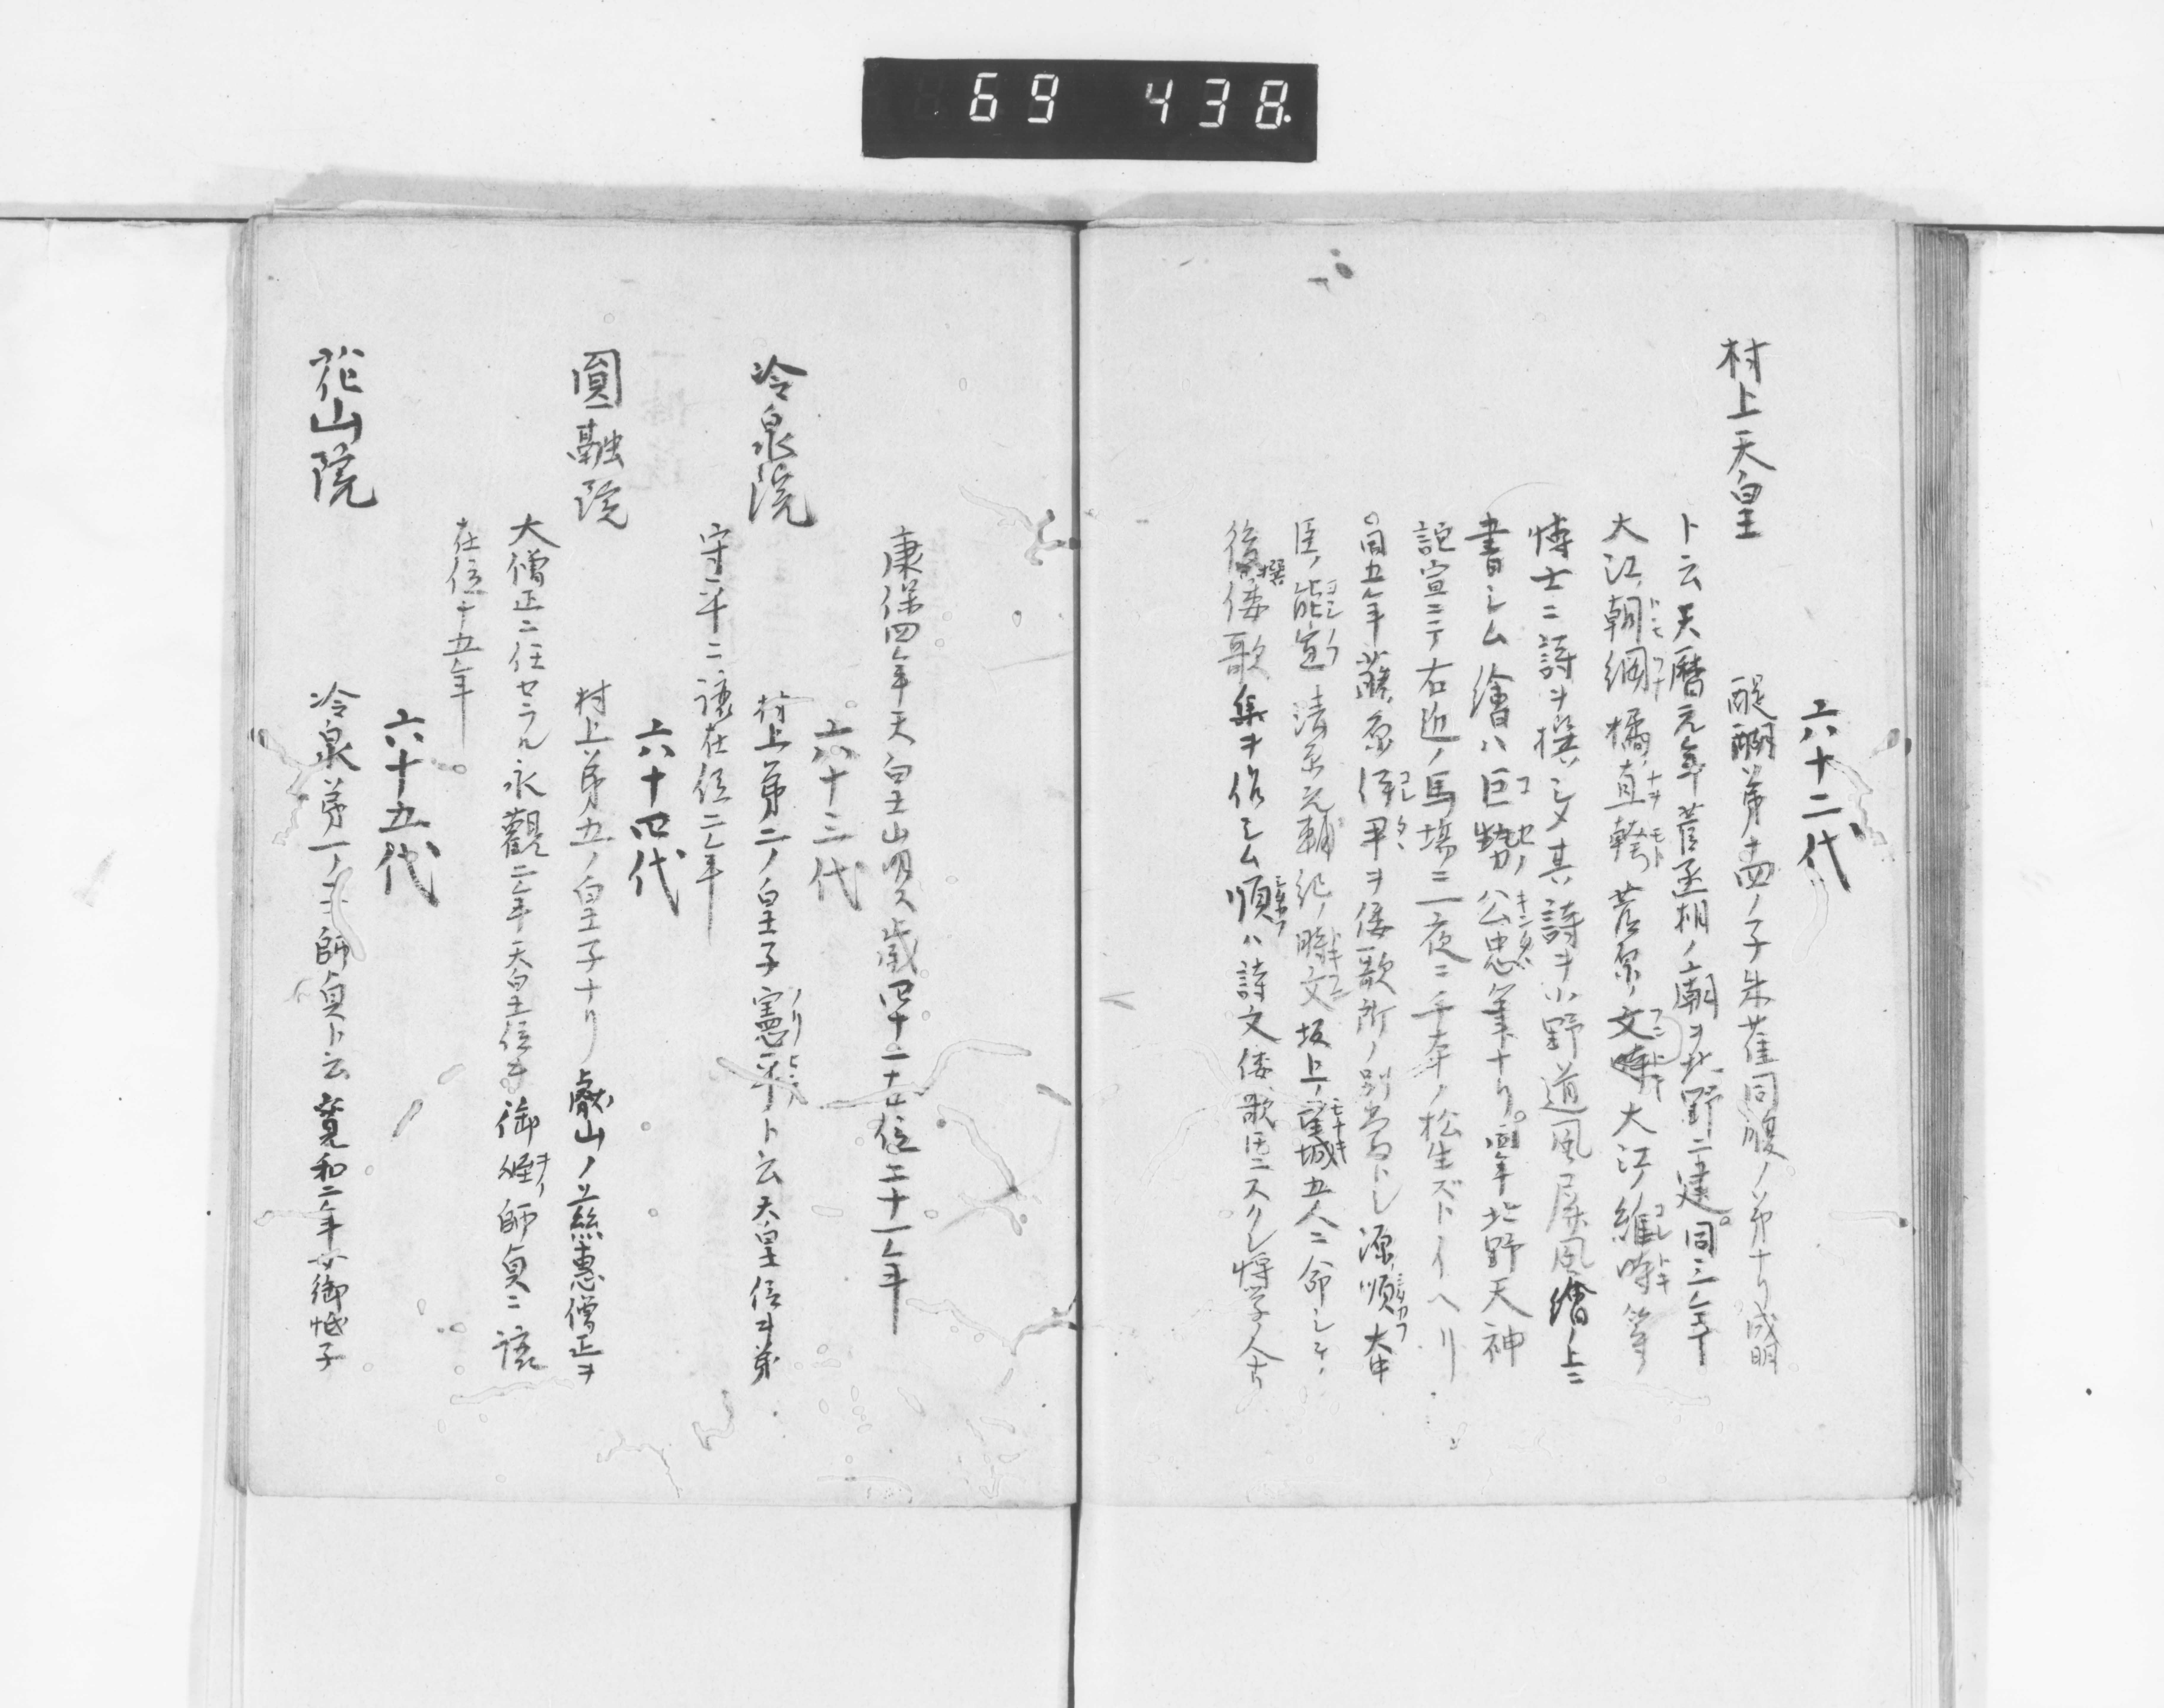 69 438
六十二代
村上天皇
醍醐第十四ノ子朱雀同腹ノ弟ナリ成明
ト云天暦元年菅丞相ノ廟ヲ北野ニ建。同三年
大江ノ朝綱橘ノ直幹菅原ノ文時大江維時等
博士ニ詩ヲ撰シメ其詩ヲ小野道風屏風繪ノ上ニ
書シム繪ハ巨勢ノ公忠筆ナリ。同年北野天神
詫宣ニテ右近ノ馬塲ニ一夜ニ千本ノ松生ズトイヘリ
○同五年藤原伊尹ヲ倭歌所ノ別當トシ源ノ順大中
臣ノ能宣清原元輔紀ノ時文坂上ノ望城五人ニ命シテ
後撰倭歌集ヲ作シム順ハ詩文倭歌
康保四年天皇崩ス歳四十二在位二十一年
六十三代
冷泉院
村上第二ノ皇子憲平ト云天皇位ヲ弟
守平ニ讓在位二年
六十四代
圓融院
村上第五ノ皇子ナリ叡山ノ慈惠僧正ヲ
大僧正ニ任セラル永觀二年天皇位ヲ御姪師貞ニ讓
在位十五年
六十五代
花山院
冷泉第一ノ子師貞ト云寛和二年女御忯子